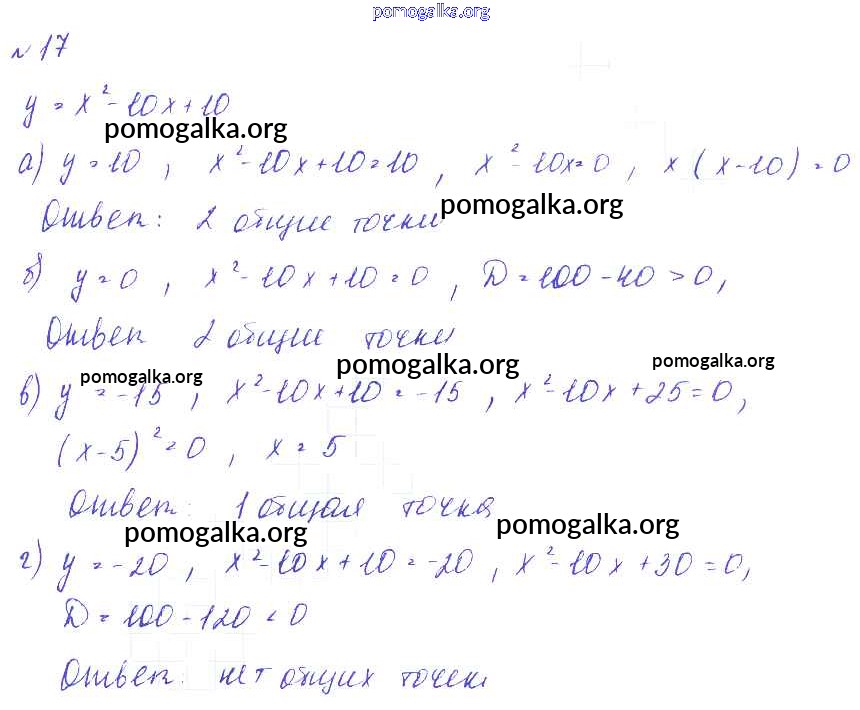 pomogalka.org
№ 17
y = x² - 10x + 10
pomogalka.org
а) y = 10 , x² - 10x + 10 = 10 , x² - 10x = 0 , x ( x - 10 ) = 0
Ответ: 2 общие точки
pomogalka.org
б) y = 0 , x² - 10x + 10 = 0 , D = 100 - 40 > 0 ,
Ответ 2 общие точки
pomogalka.org pomogalka.org pomogalka.org
в) y = -15 , x² - 10x + 10 = -15 , x² - 10x + 25 = 0 ,
(x - 5)² = 0 , x = 5
Ответ: 1 общая точка
pomogalka.org pomogalka.org
г) y = -20 , x² - 10x + 10 = -20 , x² - 10x + 30 = 0 ,
D = 100 - 120 < 0
Ответ: нет общих точек